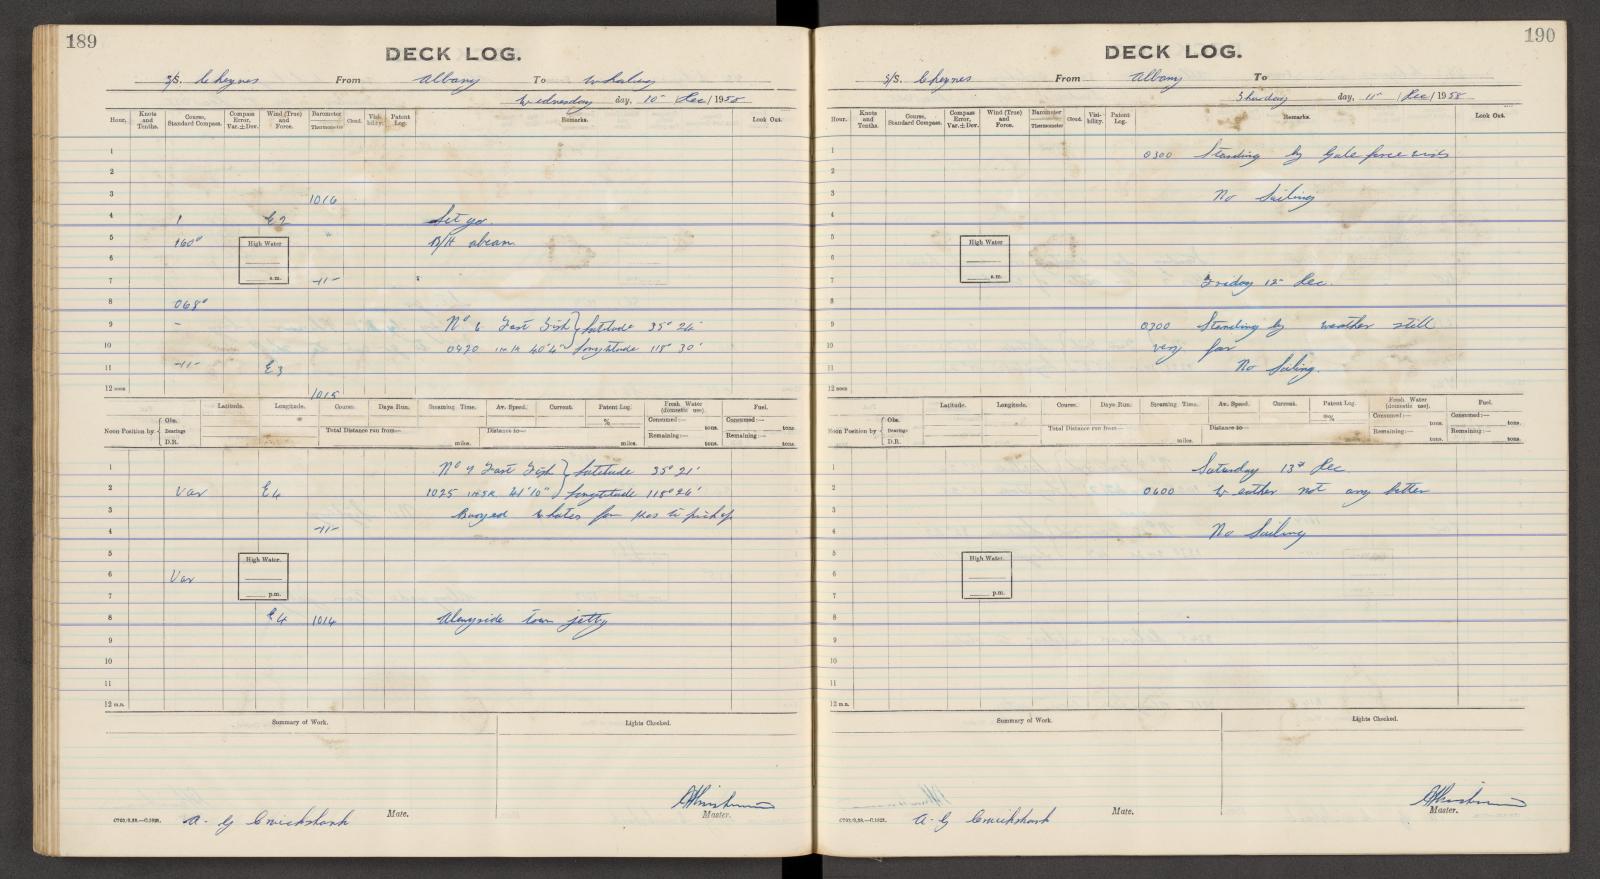 189
DECK LOG.
S/S. Cheynes From Albany To Whaling
Wednesday day, 10th Dec / 1958
Hour. Knots and Tenths. Course, Standard Compass. Compass Error, Var. ± Dev. Wind (True) and Force. Barometer Thermometer Cloud. Visibility. Patent Log. Remarks. Look Out.
1
2
3 1016
4 E2 Set go.
5 160° " B/H abeam
High Water
6
a.m.
7 -11-
8 068°
9 - No 6 Fast Fish } Latitude 35° 24'
10 0920 40'4" } Longtitude 118° 30'
11 -11- E3
12 noon 1015
Latitude. Longitude. Course. Days Run. Steaming Time. Av. Speed. Current. Patent Log. Fresh Water (domestic use). Fuel.
Noon Position by { Obs. Bearings D.R.
% Consumed:— tons. Consumed:— tons.
Total Distance run from— miles. Distance to— miles. Remaining:— tons. Remaining:— tons.
1 No 7 Fast Fish } Latitude 35° 21'
2 Var E4 1025 41'10" } Longtitude 118° 26'
3 Buoyed Whales for Kos to pick up
4 -11-
5
High Water.
6 Var
p.m.
7
8 E4 1014 Alongside town jetty
9
10
11
12 m.n.
Summary of Work. Lights Checked.
A. G Cruickshank Mate. Master.
190
DECK LOG.
S/S. Cheynes From Albany To
Thursday day, 11th / Dec / 1958
Hour. Knots and Tenths. Course, Standard Compass. Compass Error, Var. ± Dev. Wind (True) and Force. Barometer Thermometer Cloud. Visibility. Patent Log. Remarks. Look Out.
1 0300 Standing by Gale force winds
2
3 No Sailing
4
5
High Water
6
a.m.
7 Friday 12th Dec.
8
9 0300 Standing by weather still
10 very poor
11 No Sailing.
12 noon
Latitude. Longitude. Course. Days Run. Steaming Time. Av. Speed. Current. Patent Log. Fresh Water (domestic use). Fuel.
Noon Position by { Obs. Bearings D.R.
% Consumed:— tons. Consumed:— tons.
Total Distance run from— miles. Distance to— miles. Remaining:— tons. Remaining:— tons.
1 Saturday 13th Dec
2 0400 Weather not any better
3
4 No Sailing
5
High Water.
6
p.m.
7
8
9
10
11
12 m.n.
Summary of Work. Lights Checked.
A. G Cruickshank Mate. Master.